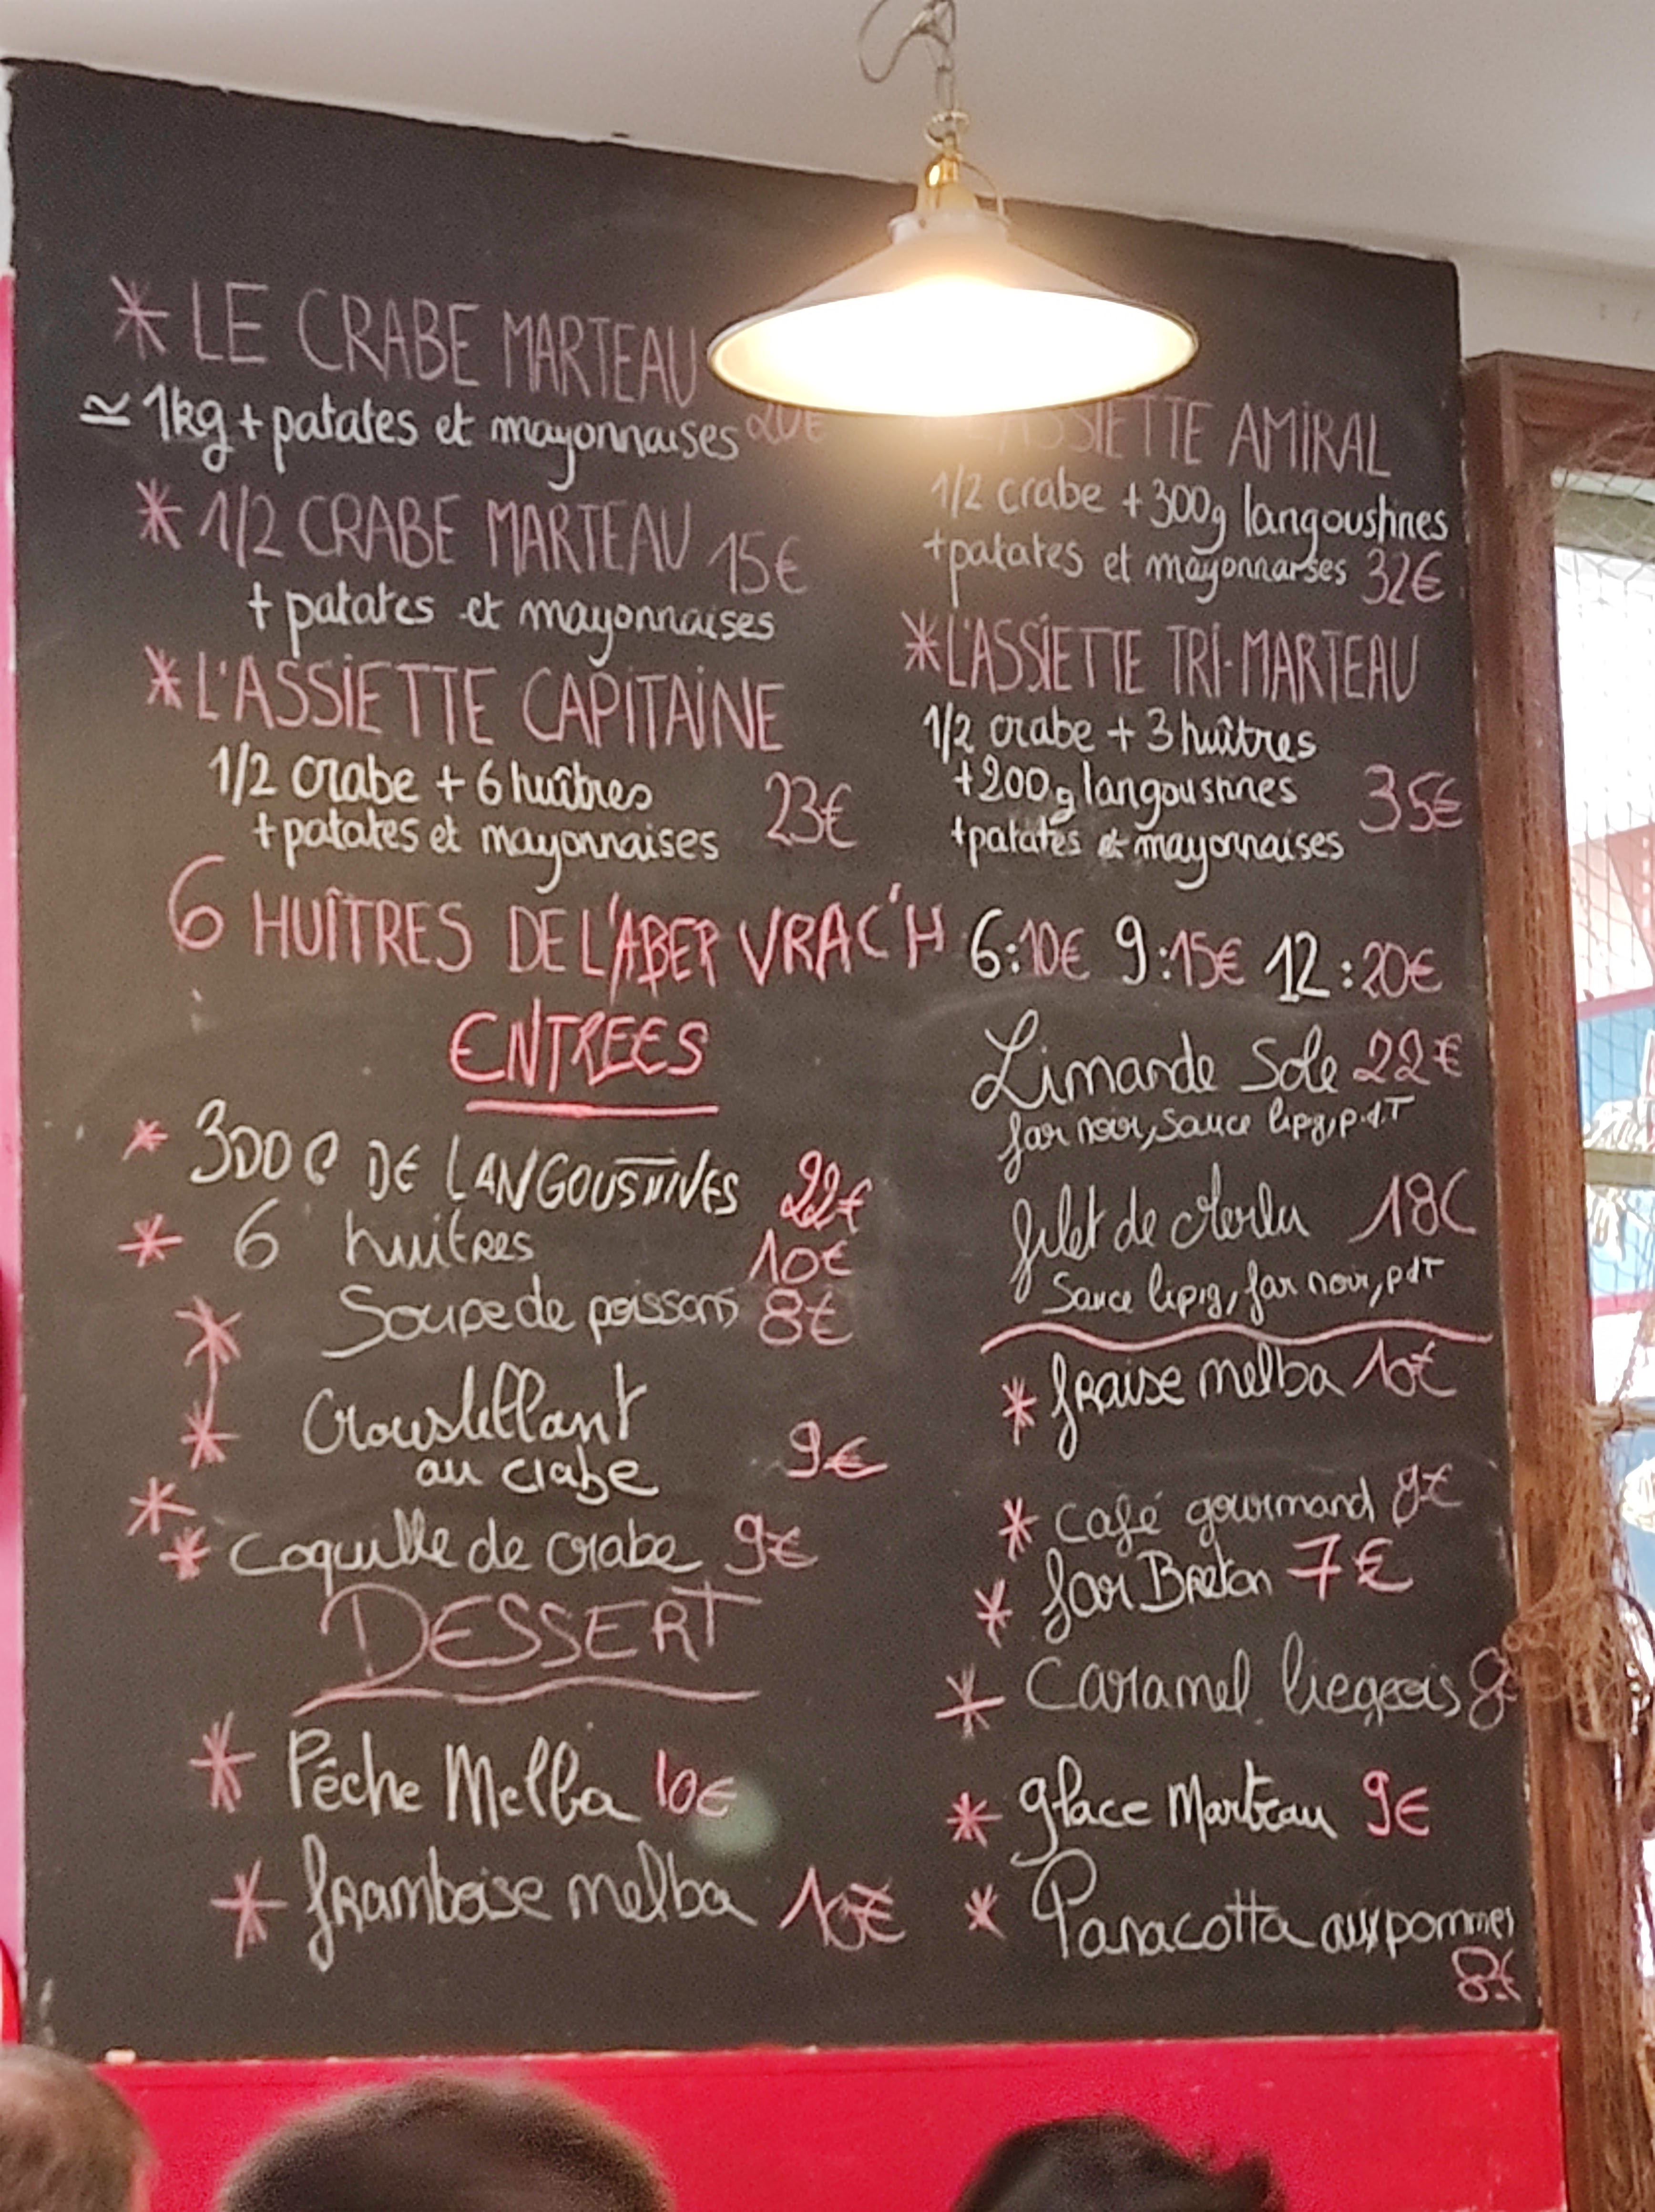 * LE CRABE MARTEAU
≃ 1kg + patates et mayonnaises 20€
* 1/2 CRABE MARTEAU 15€
+ patates et mayonnaises
* L'ASSIETTE CAPITAINE
1/2 crabe + 6 huîtres
+ patates et mayonnaises 23€
L'ASSIETTE AMIRAL
1/2 crabe + 300g langoustines
+ patates et mayonnaises 32€
* L'ASSIETTE TRI-MARTEAU
1/2 crabe + 3 huîtres
+ 200g langoustines 35€
+ patates et mayonnaises
6 HUÎTRES DE L'ABER VRAC'H 6:10€ 9:15€ 12:20€
ENTREES
* 300 G DE LANGOUSTINES 22€
* 6 huitres 10€
* Soupe de poissons 8€
* Croustillant
au crabe 9€
*
* Coquille de crabe 9€
DESSERT
* Pêche Melba 10€
* framboise melba 10€
Limande Sole 22€
far noir, Sauce lipig, p.d.T
filet de Merlu 18€
Sauce lipig, far noir, pdT
* fraise melba 10€
* Café gourmand
* far Breton 7€
* Caramel liegeois
* glace Marteau 9€
* Panacotta aux pommes
8€